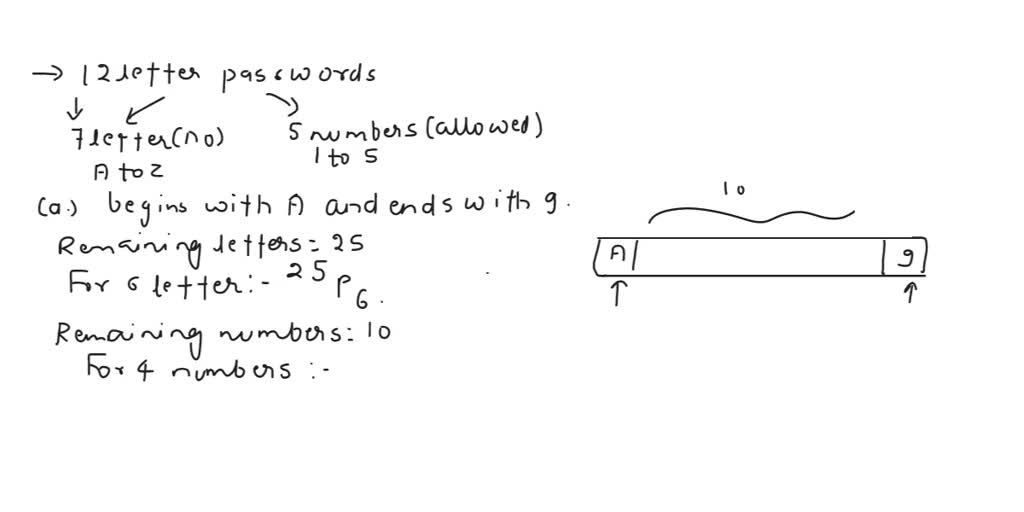 → 12 letter passwords
7 letter (no) 5 numbers (allowed)
A to Z 1 to 5
(a.) begins with A and ends with 9.
Remaining letters = 25
For 6 letter :- 25P6.
Remaining numbers = 10
For 4 numbers :-
10
A 9